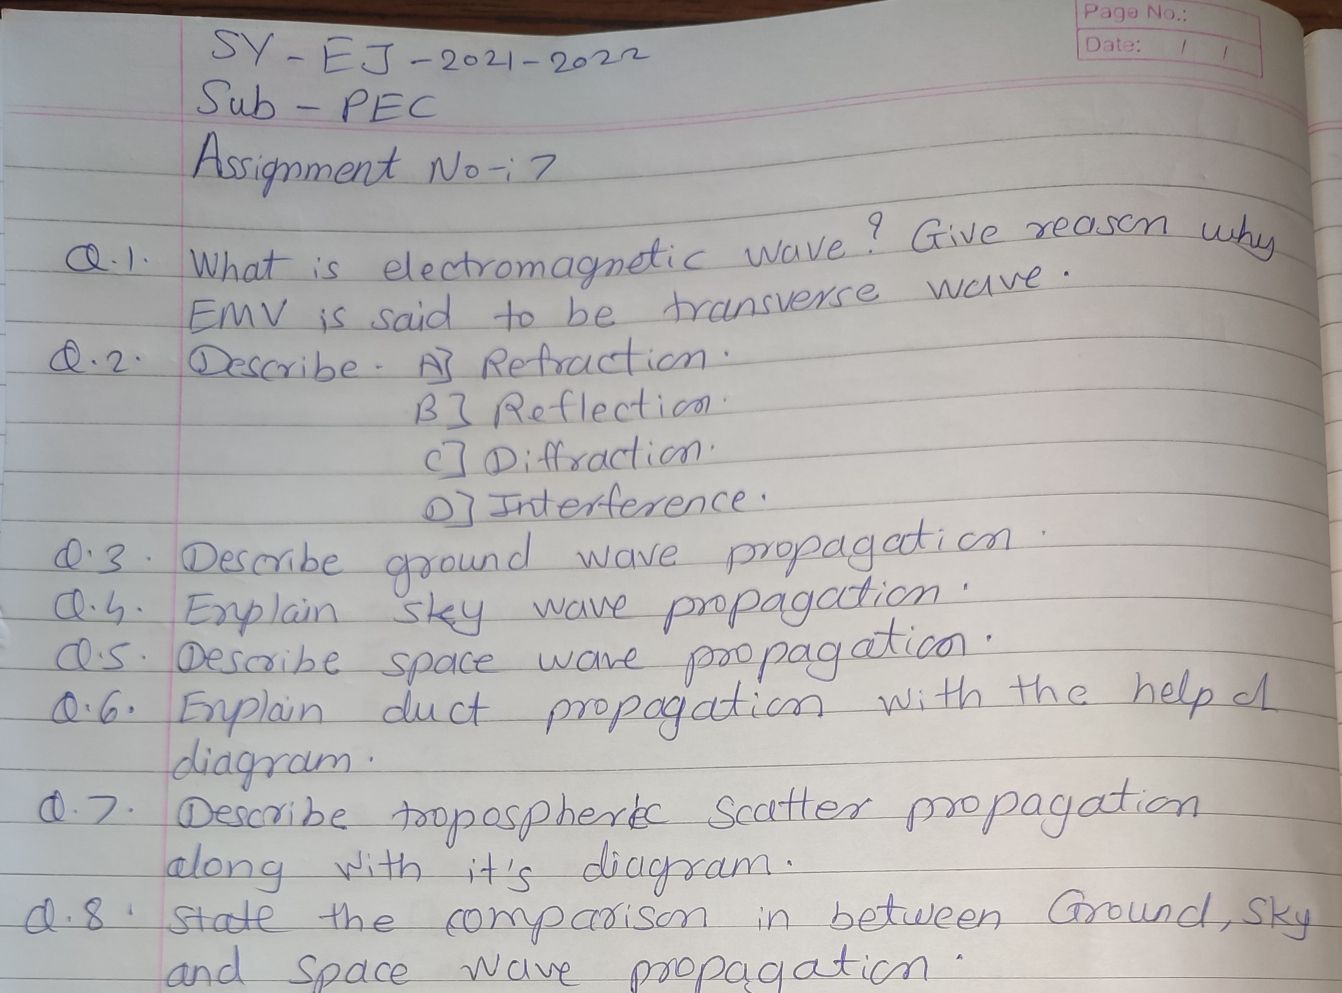 Page No.:
Date: / /
SY - EJ - 2021 - 2022
Sub - PEC
Assignment No -: 7
Q.1. What is electromagnetic wave? Give reason why
EMV is said to be transverse wave.
Q.2. Describe. A] Refraction.
B] Reflection.
C] Diffraction.
D] Interference.
Q.3. Describe ground wave propagation.
Q.4. Explain sky wave propagation.
Q.5. Describe space wave propagation.
Q.6. Explain duct propagation with the help of
diagram.
Q.7. Describe tropospheric scatter propagation
along with it's diagram.
Q.8. State the comparison in between Ground, Sky
and Space wave propagation.